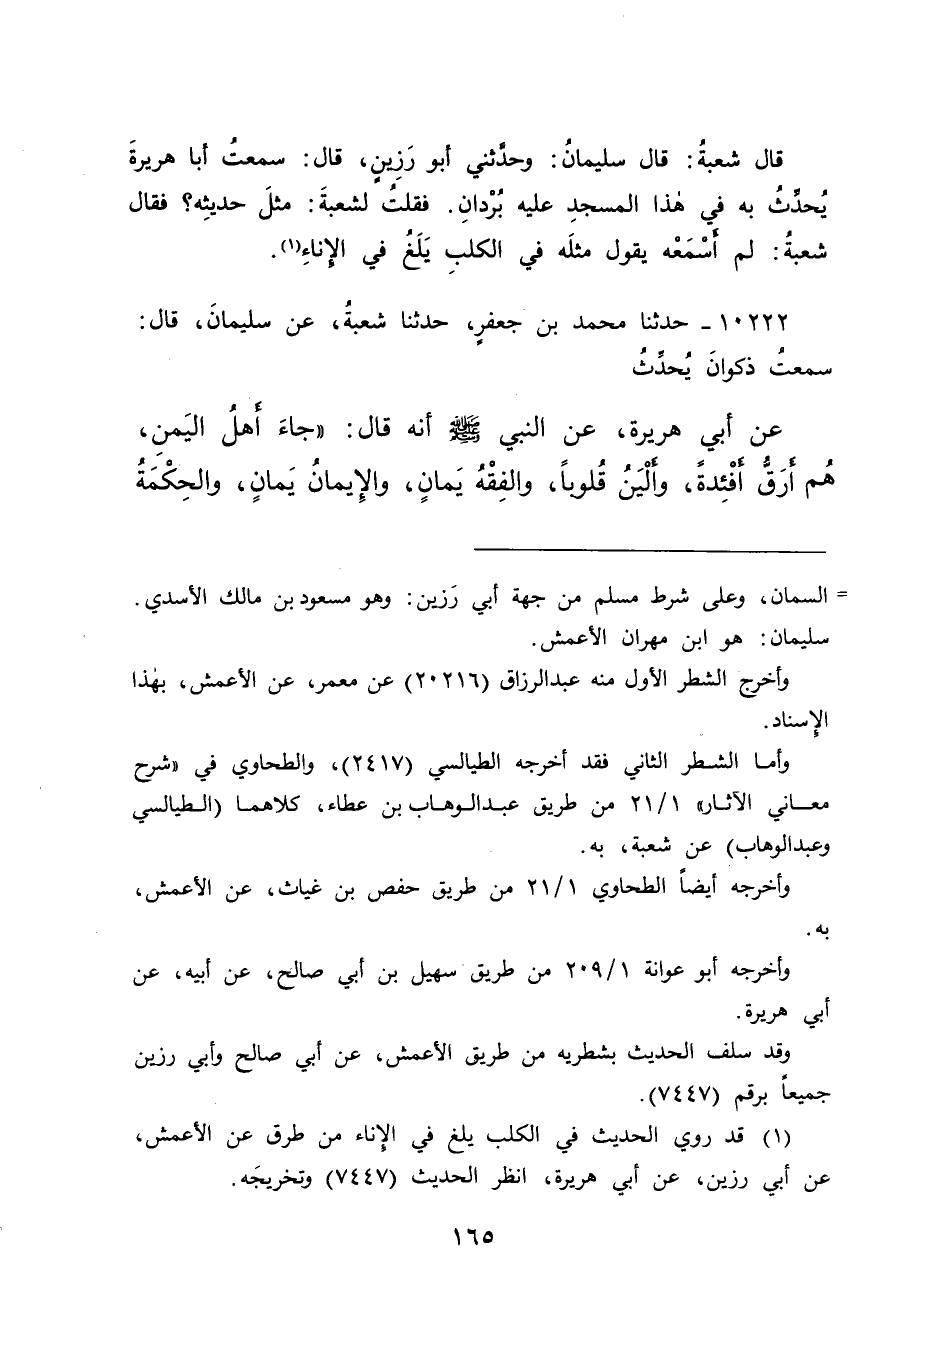 قال شعبةُ: قال سليمانُ: وحدَّثني أبو رَزِينٍ، قال: سمعتُ أبا هريرةَ
يُحدِّثُ به في هٰذا المسجدِ عليه بُرْدانِ. فقلتُ لشعبةَ: مثلَ حديثِه؟ فقال
شعبةُ: لم أَسْمَعْه يقول مثلَه في الكلبِ يَلَغُ في الإناءِ(١).
١٠٢٢٢ - حدثنا محمد بن جعفرٍ، حدثنا شعبةُ، عن سليمانَ، قال:
سمعتُ ذكوانَ يُحدِّثُ
عن أبي هريرة، عن النبي ﷺ أنه قال: «جاءَ أَهلُ اليَمنِ،
هُم أَرَقُّ أَفْئِدةً، وأَلْيَنُ قُلوباً، والفِقْهُ يَمانٍ، والإيمانُ يَمانٍ، والحِكْمَةُ
= السمان، وعلى شرط مسلم من جهة أبي رَزين: وهو مسعود بن مالك الأسدي.
سليمان: هو ابن مهران الأعمش.
وأخرج الشطر الأول منه عبدالرزاق (٢٠٢١٦) عن معمر، عن الأعمش، بهٰذا
الإسناد.
وأما الشطر الثاني فقد أخرجه الطيالسي (٢٤١٧)، والطحاوي في «شرح
معاني الآثار» ٢١/١ من طريق عبدالوهاب بن عطاء، كلاهما (الطيالسي
وعبدالوهاب) عن شعبة، به.
وأخرجه أيضاً الطحاوي ٢١/١ من طريق حفص بن غياث، عن الأعمش،
به.
وأخرجه أبو عوانة ٢٠٩/١ من طريق سهيل بن أبي صالح، عن أبيه، عن
أبي هريرة.
وقد سلف الحديث بشطريه من طريق الأعمش، عن أبي صالح وأبي رزين
جميعاً برقم (٧٤٤٧).
(١) قد روي الحديث في الكلب يلغ في الإناء من طرق عن الأعمش،
عن أبي رزين، عن أبي هريرة، انظر الحديث (٧٤٤٧) وتخريجَه.
١٦٥